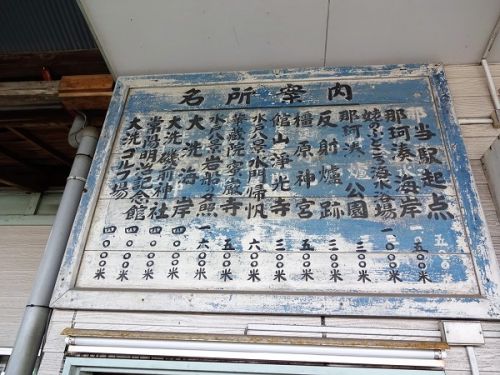 名所案内
当駅起点
那珂湊海岸 一五〇〇米
姥のふところ海水浴場 一〇〇〇米
那珂湊公園 三〇〇米
反射爐跡 三〇〇米
橿原神宮 五〇〇米
館山浄光寺 三〇〇米
水戸八景水門帰帆 六〇〇米
華蔵院蜜厳寺 五〇〇米
水戸八景岩船 一六〇〇米
大洗海岸 四〇〇〇米
大洗磯前神社 四〇〇〇米
常陽明治記念館 四〇〇〇米
大洗ゴルフ場 四〇〇〇米